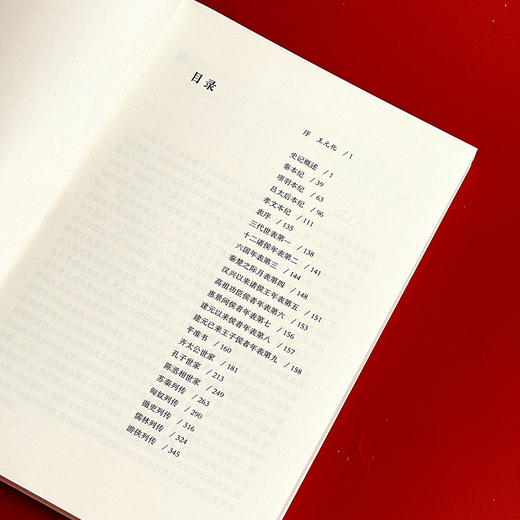 目录
序 王元化 /1
史记概述 /1
秦本纪 /39
项羽本纪 /63
吕太后本纪 /96
孝文本纪 /111
表序 /135
三代世表第一 /138
十二诸侯年表第二 /141
六国年表第三 /144
秦楚之际月表第四 /148
汉兴以来诸侯王年表第五 /151
高祖功臣侯者年表第六 /153
惠景间侯者年表第七 /156
建元以来侯者年表第八 /157
建元已来王子侯者年表第九 /158
平准书 /160
齐太公世家 /181
孔子世家 /213
陈丞相世家 /249
苏秦列传 /263
匈奴列传 /290
循吏列传 /316
儒林列传 /324
游侠列传 /345